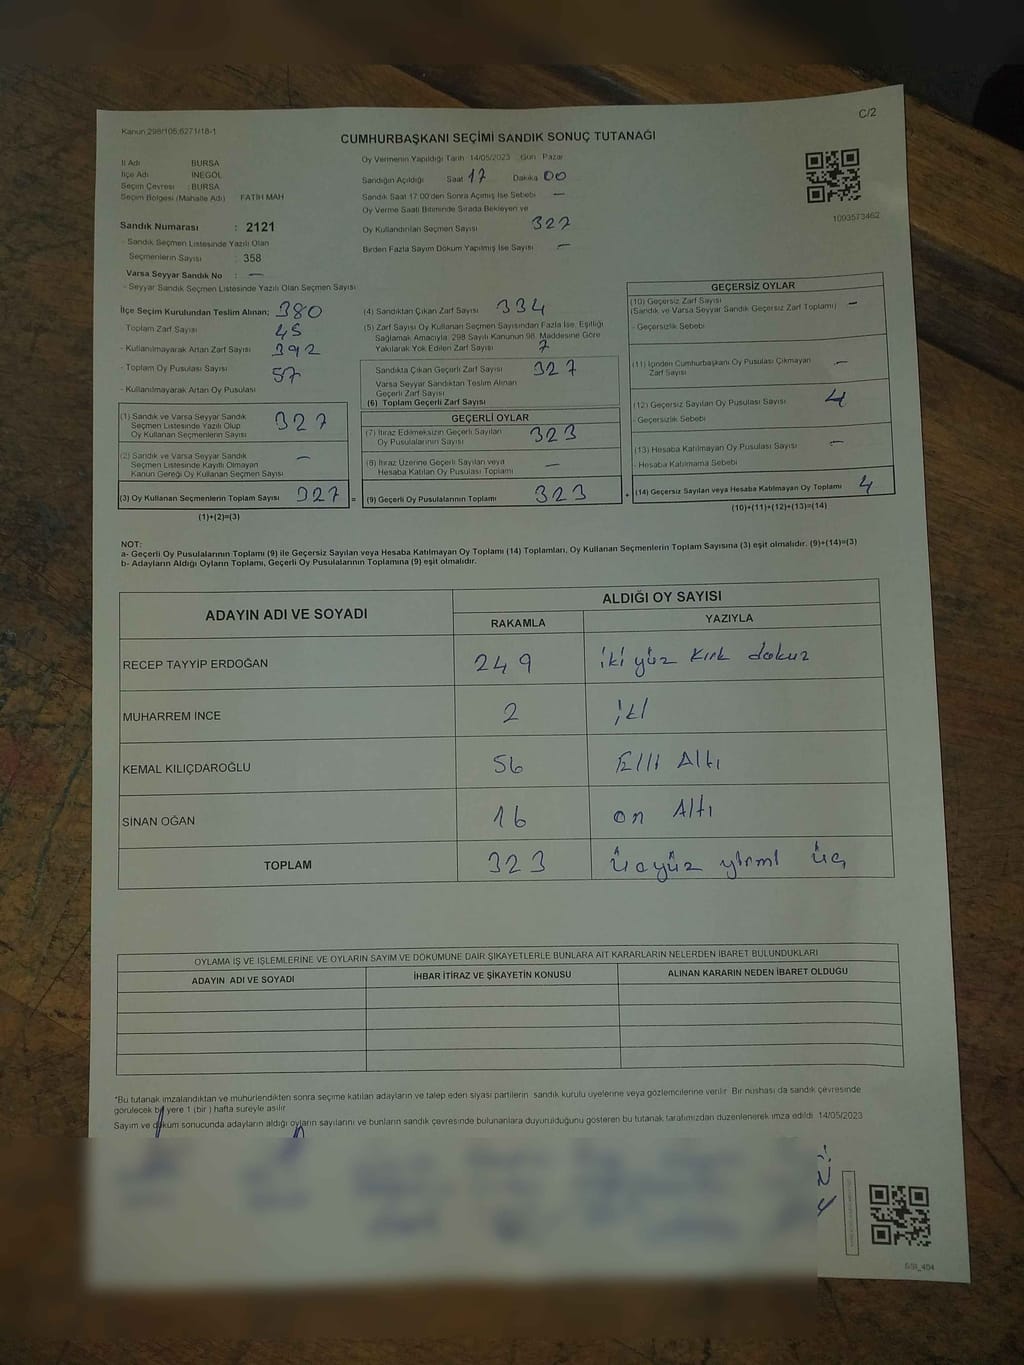 C/2
Kanun 298/105;6271/18-1
CUMHURBAŞKANI SEÇİMİ SANDIK SONUÇ TUTANAĞI
İl Adı BURSA
İlçe Adı İNEGÖL
Seçim Çevresi : BURSA
Seçim Bölgesi (Mahalle Adı) FATİH MAH
Sandık Numarası : 2121
- Sandık Seçmen Listesinde Yazılı Olan
Seçmenlerin Sayısı : 358
Varsa Seyyar Sandık No : —
- Seyyar Sandık Seçmen Listesinde Yazılı Olan Seçmen Sayısı
Oy Vermenin Yapıldığı Tarih 14/05/2023 Gün Pazar
Sandığın Açıldığı Saat 17 Dakika 00
Sandık Saat 17:00'den Sonra Açılmış İse Sebebi —
Oy Verme Saati Bitiminde Sırada Bekleyen ve
Oy Kullandırılan Seçmen Sayısı 327
Birden Fazla Sayım Döküm Yapılmış İse Sayısı —
1093573462
İlçe Seçim Kurulundan Teslim Alınan; 380
- Toplam Zarf Sayısı 45
- Kullanılmayarak Artan Zarf Sayısı 392
- Toplam Oy Pusulası Sayısı 57
- Kullanılmayarak Artan Oy Pusulası
(1) Sandık ve Varsa Seyyar Sandık
Seçmen Listesinde Yazılı Olup
Oy Kullanan Seçmenlerin Sayısı 327
(2) Sandık ve Varsa Seyyar Sandık
Seçmen Listesinde Kayıtlı Olmayan
Kanun Gereği Oy Kullanan Seçmen Sayısı —
(3) Oy Kullanan Seçmenlerin Toplam Sayısı 327 =
(1)+(2)=(3)
(4) Sandıktan Çıkan Zarf Sayısı 334
(5) Zarf Sayısı Oy Kullanan Seçmen Sayısından Fazla İse, Eşitliği
Sağlamak Amacıyla, 298 Sayılı Kanunun 98. Maddesine Göre
Yakılarak Yok Edilen Zarf Sayısı 7
Sandıkta Çıkan Geçerli Zarf Sayısı 327
Varsa Seyyar Sandıktan Teslim Alınan
Geçerli Zarf Sayısı
(6) Toplam Geçerli Zarf Sayısı
GEÇERLİ OYLAR
(7) İtiraz Edilmeksizin Geçerli Sayılan
Oy Pusulalarının Sayısı 323
(8) İtiraz Üzerine Geçerli Sayılan veya
Hesaba Katılan Oy Pusulası Toplamı —
(9) Geçerli Oy Pusulalarının Toplamı 323 +
GEÇERSİZ OYLAR
(10) Geçersiz Zarf Sayısı —
(Sandık ve Varsa Seyyar Sandık Geçersiz Zarf Toplamı)
- Geçersizlik Sebebi
(11) İçinden Cumhurbaşkanı Oy Pusulası Çıkmayan
Zarf Sayısı —
(12) Geçersiz Sayılan Oy Pusulası Sayısı 4
- Geçersizlik Sebebi
(13) Hesaba Katılmayan Oy Pusulası Sayısı —
- Hesaba Katılmama Sebebi
(14) Geçersiz Sayılan veya Hesaba Katılmayan Oy Toplamı 4
(10)+(11)+(12)+(13)=(14)
NOT:
a- Geçerli Oy Pusulalarının Toplamı (9) ile Geçersiz Sayılan veya Hesaba Katılmayan Oy Toplamı (14) Toplamları, Oy Kullanan Seçmenlerin Toplam Sayısına (3) eşit olmalıdır. (9)+(14)=(3)
b- Adayların Aldığı Oyların Toplamı, Geçerli Oy Pusulalarının Toplamına (9) eşit olmalıdır.
ADAYIN ADI VE SOYADI ALDIĞI OY SAYISI
RAKAMLA YAZIYLA
RECEP TAYYİP ERDOĞAN 249 iki yüz kırk dokuz
MUHARREM İNCE 2 iki
KEMAL KILIÇDAROĞLU 56 Elli Altı
SİNAN OĞAN 16 on Altı
TOPLAM 323 üçyüz yirmi üç
OYLAMA İŞ VE İŞLEMLERİNE VE OYLARIN SAYIM VE DÖKÜMÜNE DAİR ŞİKAYETLERLE BUNLARA AİT KARARLARIN NELERDEN İBARET BULUNDUKLARI
ADAYIN ADI VE SOYADI İHBAR İTİRAZ VE ŞİKAYETİN KONUSU ALINAN KARARIN NEDEN İBARET OLDUĞU
*Bu tutanak imzalandıktan ve mühürlendikten sonra seçime katılan adayların ve talep eden siyasi partilerin sandık kurulu üyelerine veya gözlemcilerine verilir. Bir nüshası da sandık çevresinde
görülecek bir yere 1 (bir) hafta süreyle asılır
Sayım ve döküm sonucunda adayların aldığı oyların sayılarını ve bunların sandık çevresinde bulunanlara duyurulduğunu gösteren bu tutanak tarafımızdan düzenlenerek imza edildi. 14/05/2023